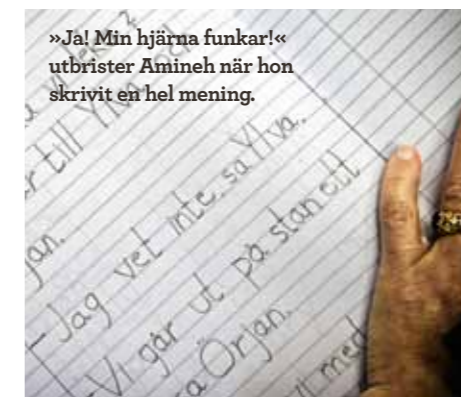 »Ja! Min hjärna funkar!«
utbrister Amineh när hon
skrivit en hel mening.
till Ylva
jan.
- Jag vet inte. sa Ylva.
- Vi går ut på stan ett
Örjan.
med